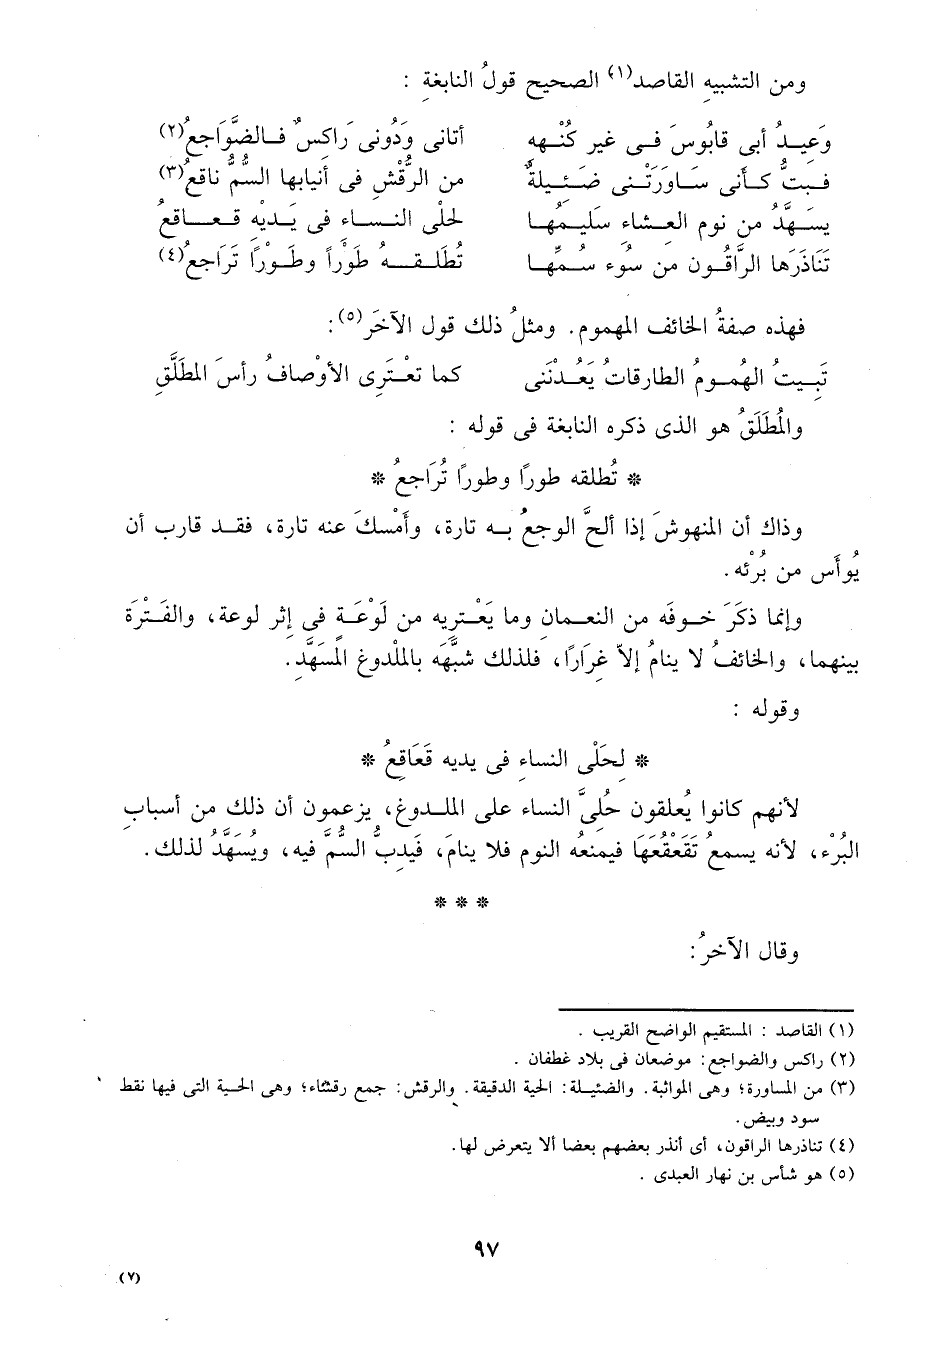 ومن التشبيه القاصد(١) الصحيح قولُ النابغة :
وَعيدُ أبى قابوسَ فى غير كُنْهِه أتانى ودُونى رَاكسٌ فالضَّوَاجعُ(٢)
فبتُّ كأنى سَاورَتْنى ضَئيلةٌ من الرُّقْش فى أنيابها السُّمُّ ناقعُ(٣)
يسَهَّدُ من نوم العشاء سَليمُها لحلْى النساء فى يَديْه قعاقعُ
تَنَاذَرَها الرَّاقُون من سُوء سُمِّها تُطَلِّقه طَوْراً وطَوْرًا تَرَاجعُ(٤)
فهذه صفةُ الخائف المهموم. ومثلُ ذلك قول الآخَر(٥):
تَبيتُ الهُمومُ الطارقاتُ يَعُدْنَنى كما تعْتَرِى الأوْصافُ رأسَ المطَلَّقِ
والمُطَلَقُ هو الذى ذكره النابغة فى قوله :
* تُطلقه طورًا وطورًا تُرَاجعُ *
وذاك أن المنهوشَ إذا ألحَّ الوجعُ به تارة، وأمْسكَ عنه تارة، فقد قارب أن
يُوأَس من بُرْئه.
وإنما ذكَرَ خوفَه من النعمان وما يَعْتريه من لَوْعَةٍ فى إثر لوعة، والفَتْرَة
بينهما، والخائفُ لا ينامُ إلاّ غرَارًا، فلذلك شبَّهَه بالملْدوغ المسَهَّدِ.
وقوله :
* لحَلْى النساءِ فى يديه قَعَاقعُ *
لأنهم كانوا يُعلقون حُلىَّ النساء على الملدوغ، يزعمون أن ذلك من أسباب
البُرْء، لأنه يسمعُ تَقَعْقُعَهَا فيمنعُه النوم فلا ينامَ، فَيدبُّ السُّمُّ فيه، ويُسَهَّدُ لذلك.
* * *
وقال الآخرُ:
(١) القاصد : المستقيم الواضح القريب .
(٢) راكس والضواجع: موضعان فى بلاد غطفان .
(٣) من المساورة؛ وهى المواثبة. والضئيلة: الحية الدقيقة. والرقش: جمع رقشاء؛ وهى الحية التى فيها نقط
سود وبيض.
(٤) تناذرها الراقون، أى أنذر بعضهم بعضا ألا يتعرض لها.
(٥) هو شأس بن نهار العبدى .
٩٧
(٧)